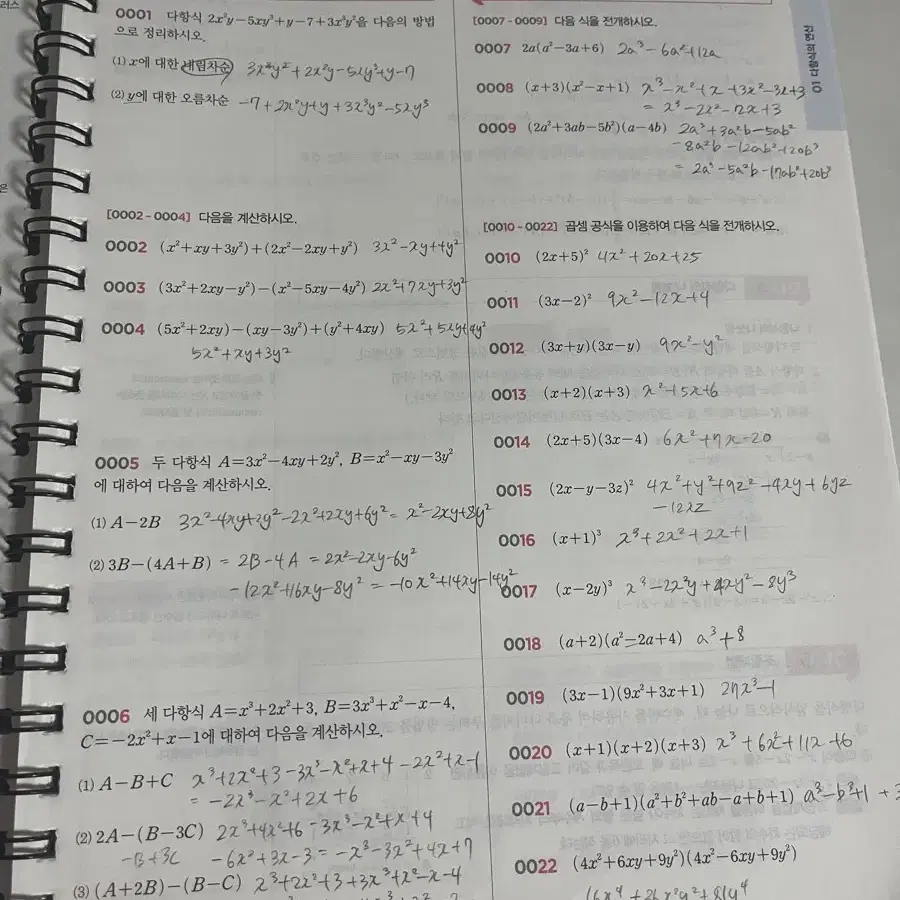 러스
0001 다항식 2x²y−5xy³+y−7+3x³y²을 다음의 방법
으로 정리하시오.
(1) x에 대한 내림차순 3x³y²+2x²y−5xy³+y−7
(2) y에 대한 오름차순 −7+2x²y+y+3x³y²−5xy³
[0002 - 0004] 다음을 계산하시오.
0002 (x²+xy+3y²)+(2x²−2xy+y²) 3x²−xy+4y²
0003 (3x²+2xy−y²)−(x²−5xy−4y²) 2x²+7xy+3y²
0004 (5x²+2xy)−(xy−3y²)+(y²+4xy) 5x²+5xy+4y²
5x²+xy+3y²
0005 두 다항식 A=3x²−4xy+2y², B=x²−xy−3y²
에 대하여 다음을 계산하시오.
(1) A−2B 3x²−4xy+2y²−2x²+2xy+6y²= x²−2xy+8y²
(2) 3B−(4A+B) = 2B−4A = 2x²−2xy−6y²
−12x²+16xy−8y² = −10x²+14xy−14y²
0006 세 다항식 A=x³+2x²+3, B=3x³+x²−x−4,
C=−2x²+x−1에 대하여 다음을 계산하시오.
(1) A−B+C x³+2x²+3−3x³−x²+x+4−2x²+x−1
= −2x³−x²+2x+6
(2) 2A−(B−3C) 2x³+4x²+6−3x³−x²+x+4
−B+3C −6x²+3x−3 = −x³−3x²+4x+7
(3) (A+2B)−(B−C) x³+2x²+3+3x³+x²−x−4
[0007 - 0009] 다음 식을 전개하시오.
0007 2a(a²−3a+6) 2a³−6a²+12a
0008 (x+3)(x²−x+1) x³−x²+x+3x²−3x+3
= x³−2x²−2x+3
0009 (2a²+3ab−5b²)(a−4b) 2a³+3a²b−5ab²
−8a²b−12ab²+20b³
= 2a³−5a²b−17ab²+20b³
[0010 - 0022] 곱셈 공식을 이용하여 다음 식을 전개하시오.
0010 (2x+5)² 4x²+20x+25
0011 (3x−2)² 9x²−12x+4
0012 (3x+y)(3x−y) 9x²−y²
0013 (x+2)(x+3) x²+5x+6
0014 (2x+5)(3x−4) 6x²+7x−20
0015 (2x−y−3z)² 4x²+y²+9z²−4xy+6yz
−12xz
0016 (x+1)³ x³+2x²+2x+1
0017 (x−2y)³ x³−2x²y+4xy²−8y³
0018 (a+2)(a²−2a+4) a³+8
0019 (3x−1)(9x²+3x+1) 27x³−1
0020 (x+1)(x+2)(x+3) x³+6x²+11x+6
0021 (a−b+1)(a²+b²+ab−a+b+1) a³−b³+1 +3
0022 (4x²+6xy+9y²)(4x²−6xy+9y²)
16x⁴+36x²y²+81y⁴
01 다항식의 연산